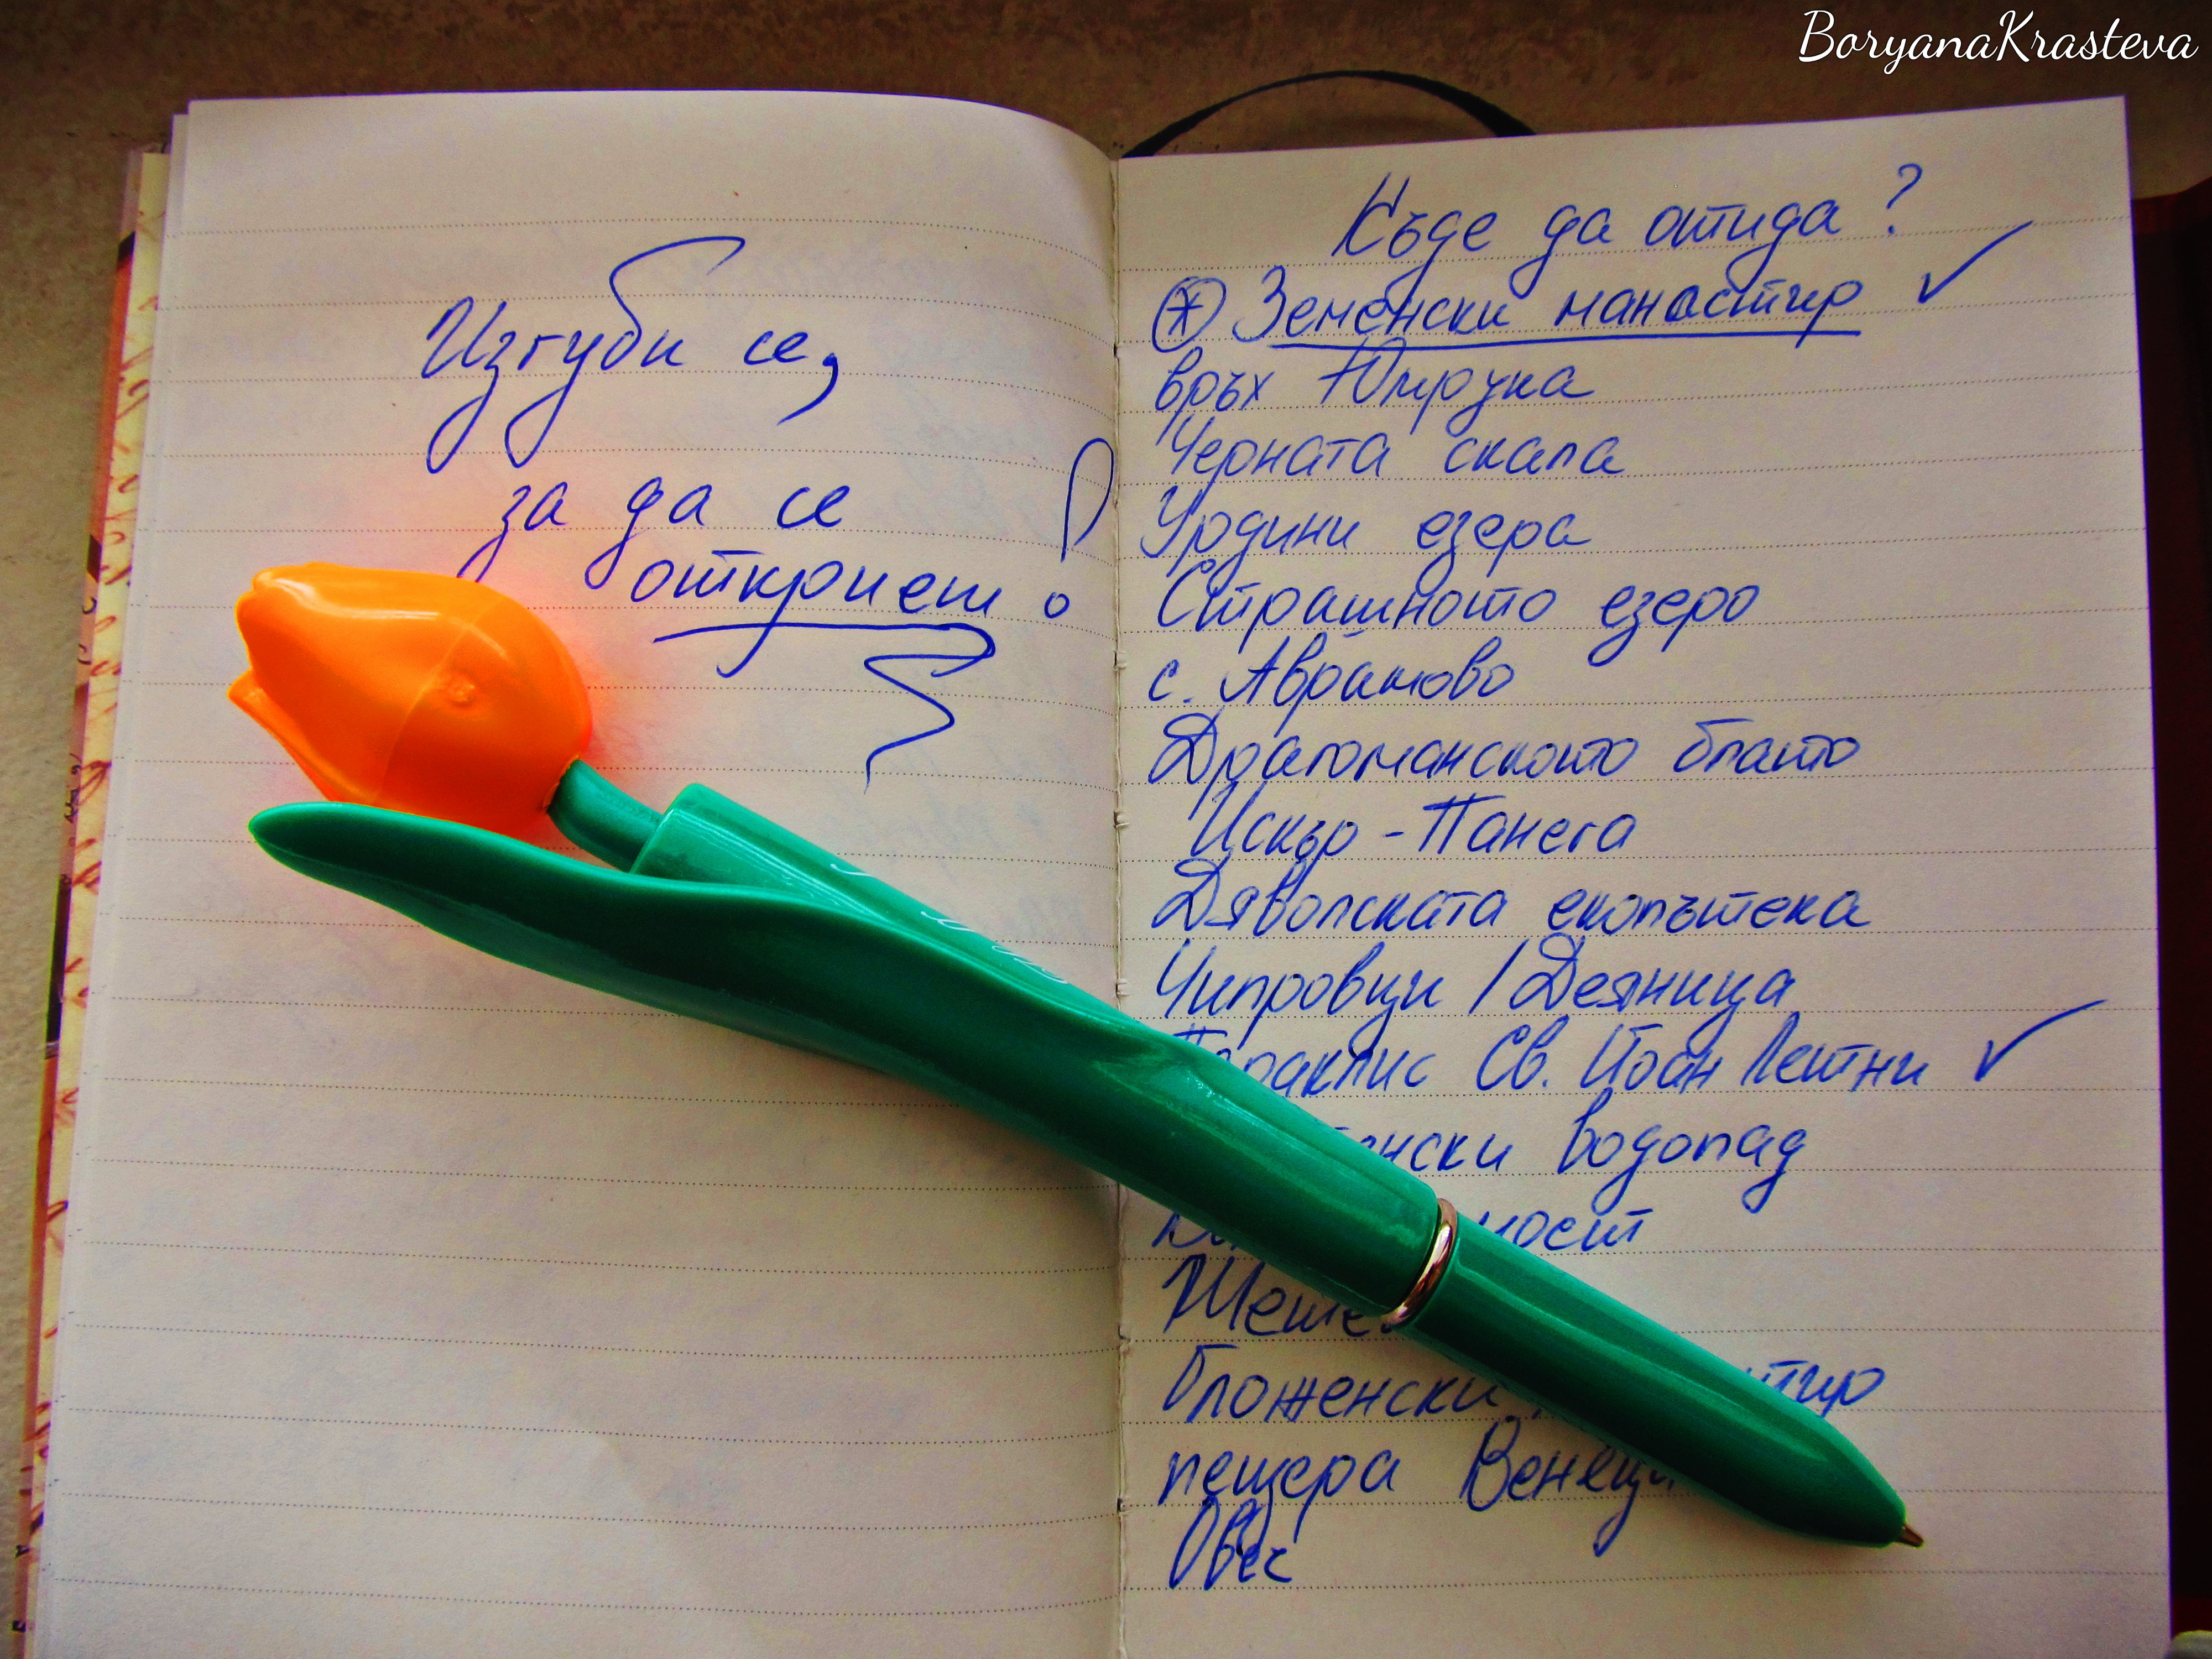 BoryanaKrasteva
Изгуби се,
за да се
откриеш!
Къде да отида?
* Земенски манастир ✓
връх Юмрука
Черната скала
Урдини езера
Страшното езеро
с. Аврамово
Драгоманското блато
Искър - Панега
Дяволската екопътека
Чипровци / Деяница
Параклис Св. Йоан Летни ✓
водопад
мост
Гложенски
пещера
Овес